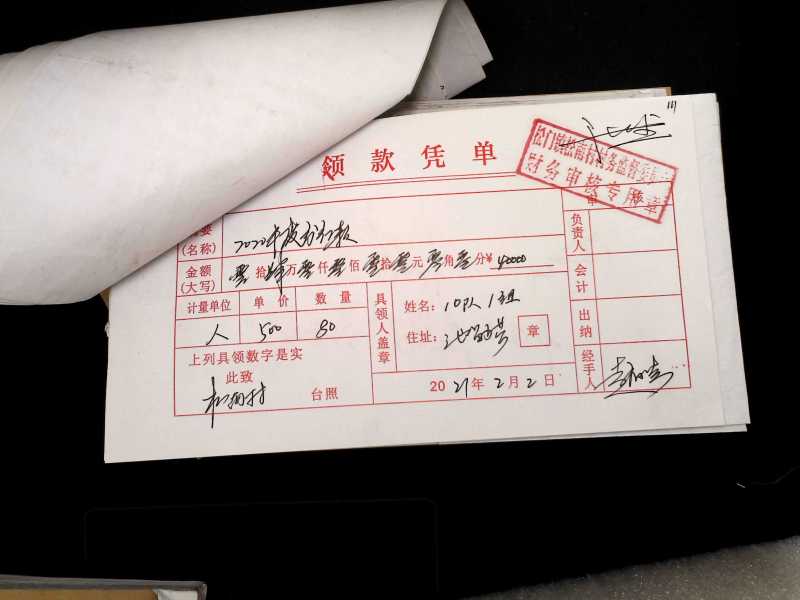 领款凭单
松门镇松南村村务监督委员会
财务审核专用章
摘要
(名称) 2020年度分红款
金额
(大写) 零拾肆万零仟零佰零拾零元零角零分¥40000
计量单位 单价 数量
人 500 80
具领人盖章
姓名: 10队1组
住址:
章
上列具领数字是实
此致
松南村 台照
2021年2月2日
负责人
会计
出纳
经手人